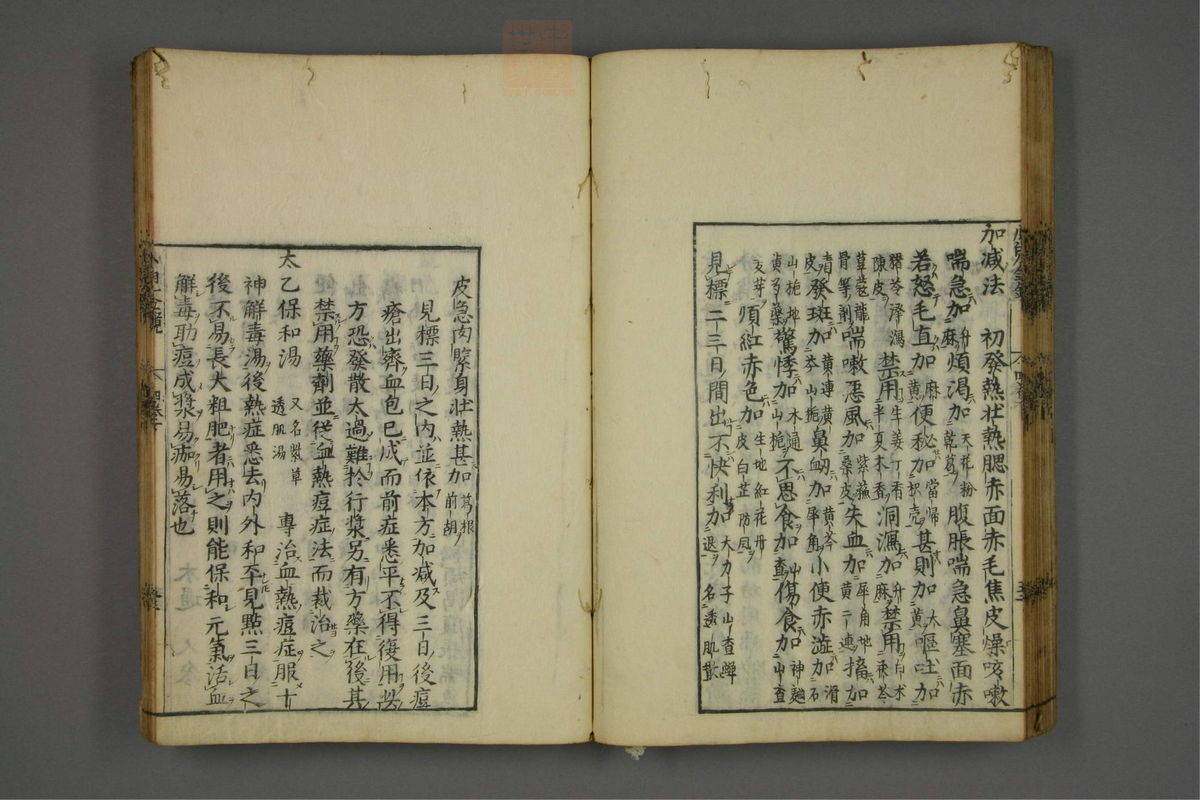 加減法　初發熱壯熱腮赤面赤毛焦皮燥咳嗽
喘急加升麻煩渴加天花粉乾葛腹脹喘急鼻塞面赤
若怒毛直加麻黃便秘加當歸枳壳甚則加大黃嘔吐加
猪苓澤瀉陳皮禁用半夏木香洞瀉加升麻禁用白术
草蔻龍骨等劑喘嗽惡風加紫蘇桑皮失血加犀角地黃連搐加
青皮發斑加黃連黃芩山梔鼻衄加黃芩犀角小便赤澁加滑石
山梔驚悸加木通山梔不思食加山查傷食加神麯山查
頂紅赤色加生地紅花丹皮白芷防風
見標二三日間出不快利加大力子山查蟬退名透肌散
皮急肉緊身壯熱甚加葛根前胡
見標三日之內並依本方加減及三日後痘
瘡出齊血包已成而前症悉平不得復用
方恐發散太過難於行漿另有方藥在後甚
禁用藥劑並從血熱痘症法而裁治之
太乙保和湯　又名紫草透肌湯　專治血熱痘症服十
神解毒湯後熱症悉去內外和平見點三日之
後不易長大粗肥者用之則能保和元氣活血
解毒助痘成漿易痂易落也